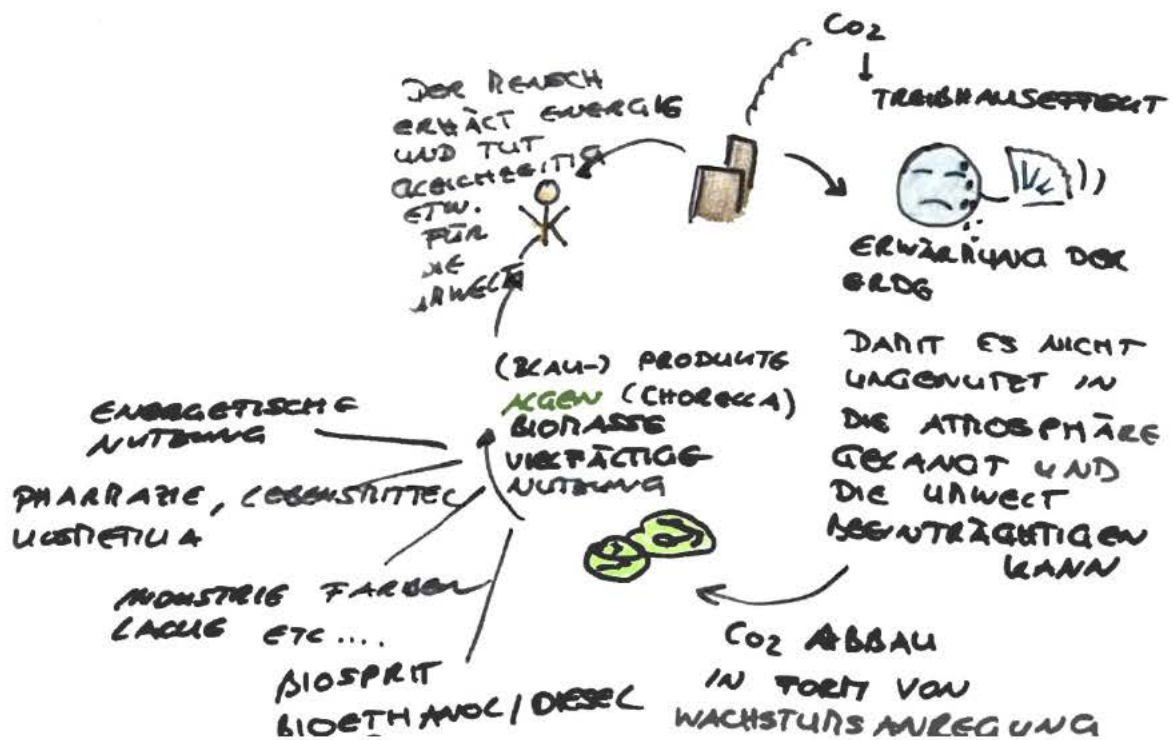 CO2
TREIBHAUSEFFEKT
DER MENSCH
ERHÄLT ENERGIE
UND TUT
GLEICHZEITIG
ETW.
FÜR
DIE
UMWELT
ERWÄRMUNG DER
ERDE
DAMIT ES NICHT
UNGENUTZT IN
DIE ATMOSPHÄRE
GELANGT UND
DIE UMWELT
BEEINTRÄCHTIGEN
KANN
CO2 ABBAU
IN FORM VON
WACHSTUMSANREGUNG
(BLAU-) PRODUKTE
ALGEN (CHORELLA)
BIOMASSE
VIELFÄLTIGE
NUTZUNG
ENERGETISCHE
NUTZUNG
PHARMAZIE, LEBENSMITTEL
KOSMETIKA
INDUSTRIE FARBEN
LACKE ETC....
BIOSPRIT
BIOETHANOL/DIESEL